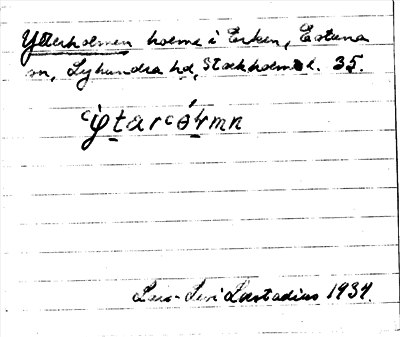 Ytterholmen holme i Erken, Estuna
sn, Lyhundra hd, Stockholms l. 35.
Lars-Levi Læstadius 1934.